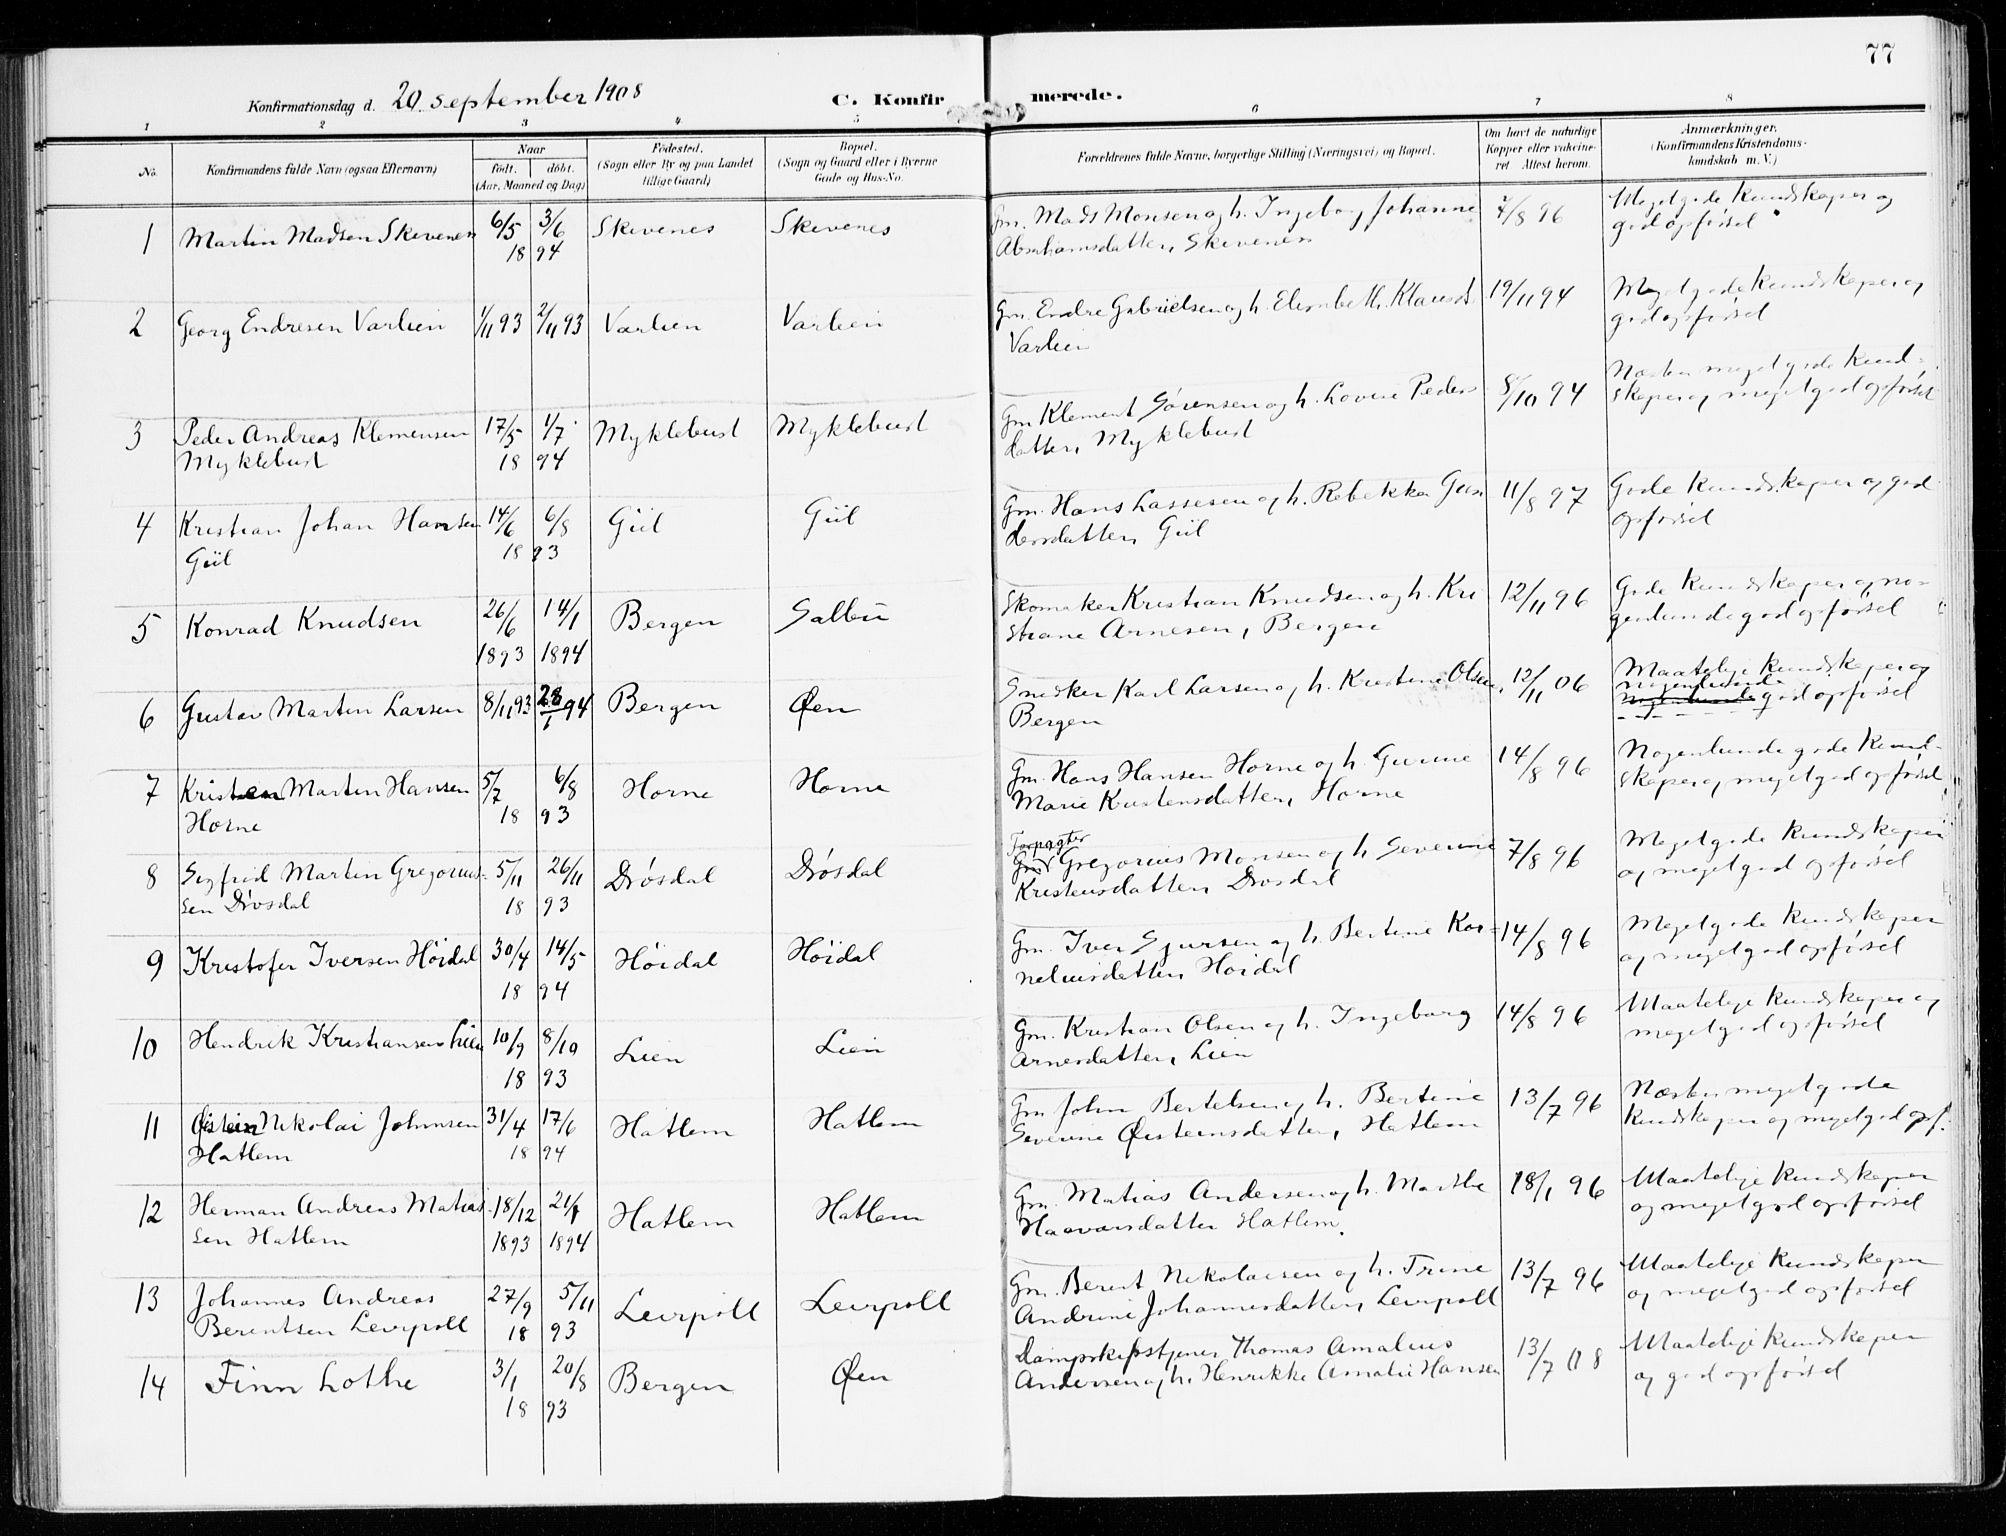 77
Konfirmationsdag d. 20. september 1908
C. Konfir merede.
1 2 3 4 5 6 7 8
No.
Konfirmandens fulde Navn (ogsaa Efternavn)
Naar
födt. döbt.
(Aar, Maaned og Dag)
Födested.
(Sogn eller By og paa Landet
tillige Gaard)
Bopæl.
(Sogn og Gaard eller i Byerne
Gade og Hus-No.
Forældrenes fulde Navne, borgerlige Stilling (Næringsvei) og Bopæl.
Om havt de naturlige
Kopper eller vakcine-
ret Attest herom.
Anmærkninger.
(Konfirmandens Kristendoms-
kundskab m. V.)
1 Martin Madsen Skivenes 6/5 3/6 Skivenes Skivenes Gm. Mads Monsen og h. Ingeborg Johanne 7/8 96 Meget gode kundskaper og
18 94 Abrahamsdatter, Skivenes god opførsel
2 Georg Endresen Varlien 1/11 93 2/11 93 Varlien Varlien Gm. Endre Gabrielsen og h. Elisabeth Klausd. 19/11 94 Meget gode kundskaper og
Varlien god opførsel
3 Peder Andreas Klemensen 17/5 1/7 Myklebust Myklebust Gm Klement Sørensen og h. Lovise Peders 8/10 94 Næsten meget gode kund-
Myklebust 18 94 datter, Myklebust skaper og meget god opførsel
4 Kristian Johan Hansen 14/6 6/8 Giil Giil Gm. Hans Lassesen og h. Rebekka 11/8 97 Gode kundskaper og god
Giil 18 93 Giil opførsel
5 Konrad Knudsen 26/6 14/1 Bergen Salbu Skomaker Kristian Knudsen og h. Kri 12/11 96 Gode kundskaper og no-
1893 1894 stiane Arnesen, Bergen genlunde god opførsel
6 Gustav Martin Larsen 8/11 93 28/1 94 Bergen Øen Snedker Karl Larsen og h. Kristine Olsen, 12/11 06 Maatelige kundskaper og
Bergen nogenlunde god opførsel
7 Kristen Martin Hansen 5/7 6/8 Horne Horne Gm. Hans Hansen Horne og h. Gurine 14/8 96 Nogenlunde gode kund-
Horne 18 93 Marie Kristensdatter, Horne skaper og meget god opførsel
8 Sigfrid Martin Gregorius- 5/11 26/11 Drøsdal Drøsdal Forpagter Gregorius Monsen og h. Severine 7/8 96 Meget gode kundskaper
sen Drøsdal 18 93 Kristensdatter Drøsdal og meget god opførsel
9 Kristofer Iversen Høidal 30/4 14/5 Høidal Høidal Gm. Iver Sjursen og h. Bertine Kor- 14/8 96 Meget gode kundskaper
18 94 neliusdatter Høidal og meget god opførsel
10 Hendrik Kristiansen Lien 10/9 8/10 Lien Lien Gm. Kristian Olsen og h. Ingeborg 14/8 96 Maatelige kundskaper og
18 93 Arnesdatter, Lien meget god opførsel
11 Øistein Nikolai Johnsen 31/4 17/6 Hatlem Hatlem Gm John Bertelsen og h. Bertine 13/7 96 Næsten meget gode
Hatlem 18 94 Severine Øisteinsdatter, Hatlem kundskaper og meget god opf.
12 Herman Andreas Matias 18/12 21/1 Hatlem Hatlem Gm. Matias Andersen og h. Marthe 18/1 96 Maatelige kundskaper
sen Hatlem 1893 1894 Haavarsdatter Hatlem. og meget god opførsel
13 Johannes Andreas 27/9 5/11 Leirpoll Leirpoll Gm. Berent Nikolaisen og h. Trine 13/7 96 Maatelige kundskaper
Berentsen Leirpoll 18 93 Andrine Johannesdatter, Leirpoll og meget god opførsel
14 Finn Lothe 3/1 20/8 Bergen Øen Dampskipstjener Thomas Amalius 13/7 08 Maatelige kundskaper
18 93 Andersen og h. Henrikke Amalie Hansen og god opførsel